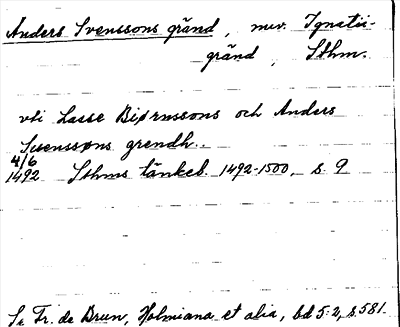 Anders Svenssons gränd, nuv. Ignatii-
gränd, Sthm.
vti Lasse Biørnssons och Anders
Suenssøns grendh..
4/6
1492 Sthms tänkeb. 1492-1500, s. 9
Se Fr. de Brun, Holmiana et alia, bd 5:2, s. 581.